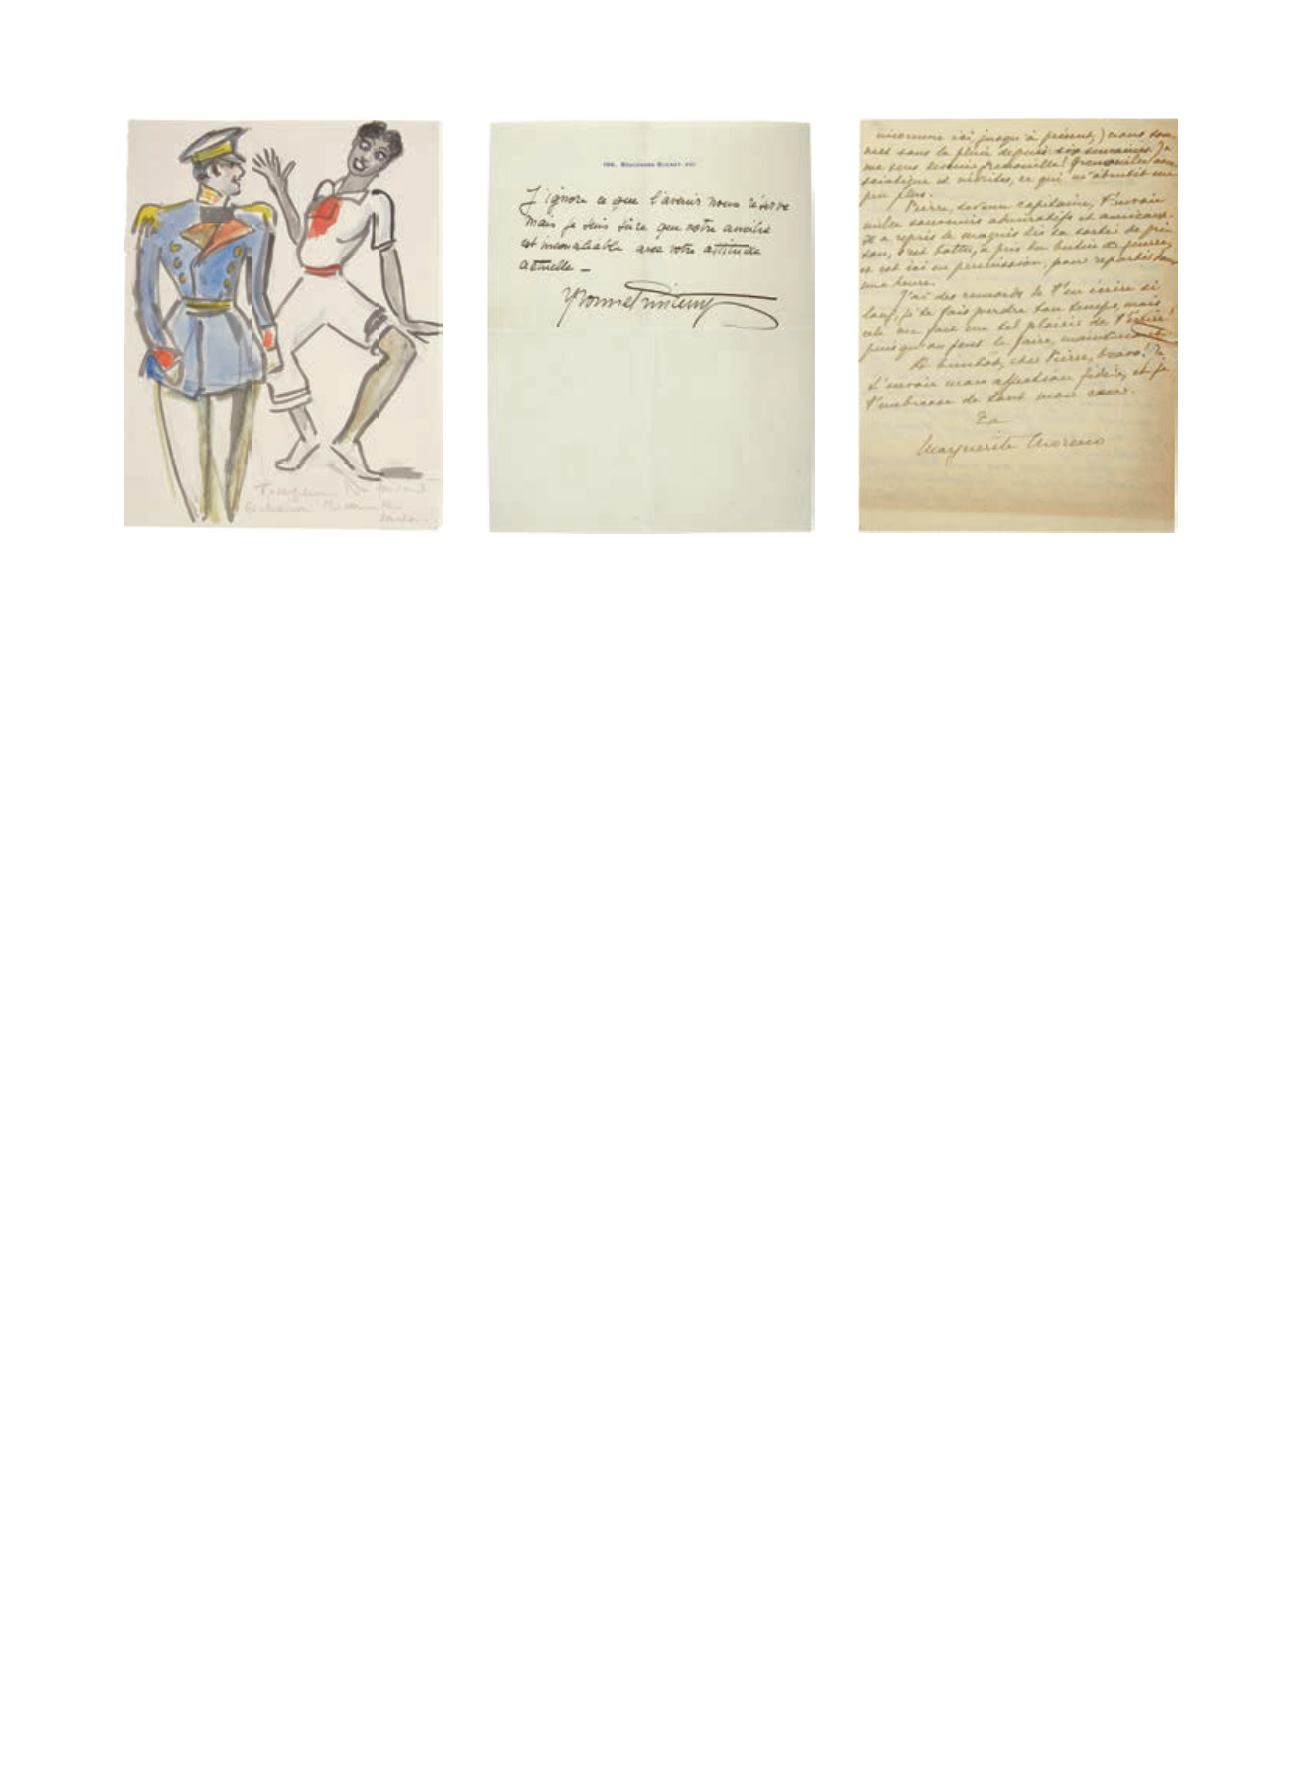 J'ignore ce que l'avenir nous réserve
mais je suis sûre que notre amitié
est inconciliable avec votre attitude
actuelle –
Yvonne Printemps
inconnue ici jusqu'à présent,) nous som-
mes sous la pluie depuis six semaines. Je
me sens devenir grenouille! Grenouille avec
sciatique et névrites, ce qui m'abrutit un
peu plus.
Pierre, devenu capitaine, t'envoie
mille souvenirs admiratifs et amicaux.
Il a repris le maquis dès sa sortie de pri-
son, s'est battu, a pris
et est ici en permission, pour repartir dans
une heure.
J'ai des remords de t'en écrire si
long, je te fais perdre ton temps, mais
cela me fait un tel plaisir de t'écrire!
puisqu'on peut le faire, maintenant.
A bientôt, cher Pierre, bravo! Je
t'envoie mon affection fidèle, et je
t'embrasse de tout mon cœur.
Ta
Marguerite Moreno